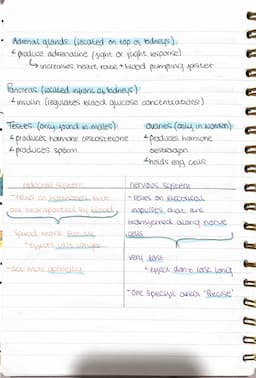 Adrenal glands (located on top of kidneys):
produce adrenaline (fight or flight response)
increases heart rate + blood pumping faster
Pancreas (located infront of kidneys):
insulin (regulates blood glucose concentrations)
Testes (only found in males)
produces hormone testosterone
produces sperm
Ovaries (only in women)
produces hormone
oestrogen
holds egg cells
system
- relies on hormones that
are transported by blood
Spread more slowly
effects last longer
- act more generally
nervous system
- relies on electrical
impulses that are
transferred along nerve
cells
very fast
effect don't last long
- one specific area "precise"